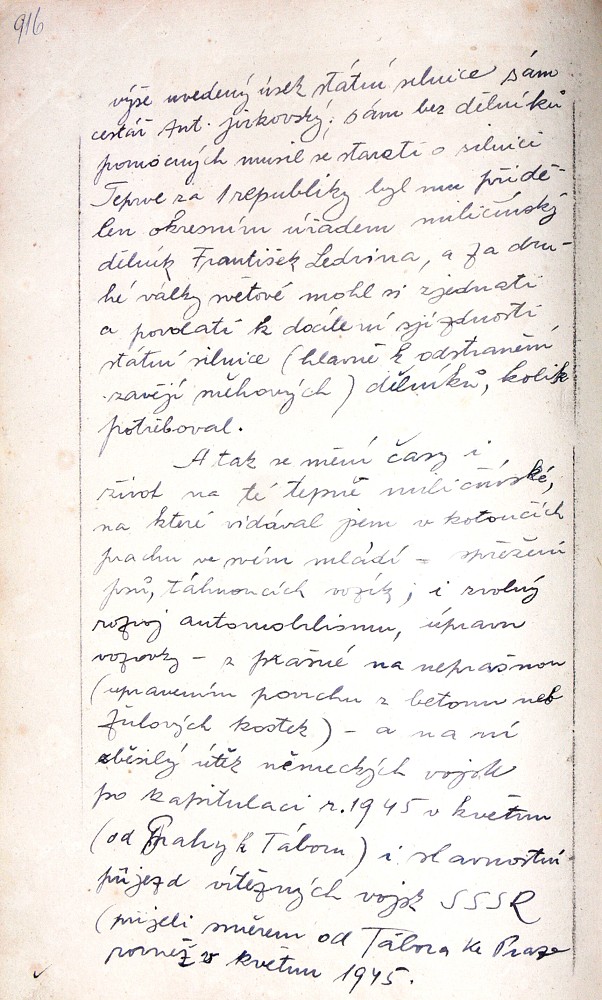 916
výše uvedený úsek státní silnice sám
cestář Ant. Jirkovský; sám bez dělníků
pomocných musil se starati o silnici
Teprve za 1 republiky byl mu přidě-
len okresním úřadem miličínský
dělník František Ledvina, a za dru-
hé války světové mohl si zjednati
a povolati k docílení sjízdnosti
státní silnice (hlavně k odstranění
závějí sněhových) dělníků, kolik
potřeboval.
A tak se mění časy i
život na té tepně miličínské,
na které vídával jsem v kotoučích
prachu ve svém mládí – spřežení
psů, táhnoucích vozík; i zvolný
rozvoj automobilismu, úpravu
vozovky – z prašné na neprašnou
(upravením povrchu z betonu neb
žulových kostek) – a na ní
zběsilý útěk německých vojsk
po kapitulaci r. 1945 v květnu
(od Prahy k Táboru) i slavnostní
příjezd vítězných vojsk SSSR
(přijeli směrem od Tábora ku Praze
rovněž v květnu 1945.